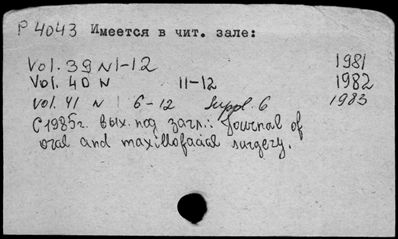 P 4043 Имеется в чит. зале:
Vol. 39 N 1-12 1981
Vol. 40 N 11-12 1982
vol. 41 N 6-12 Suppl. 6 1983
С 1985г. вых. под загл.: Journal of
oral and maxillofacial surgery.